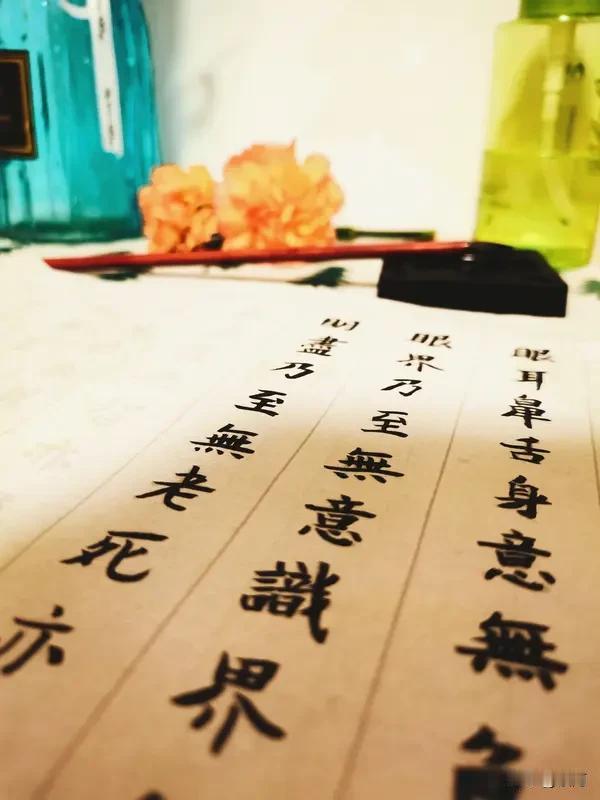 眼耳鼻舌身意無色
眼界乃至無意識界
明盡乃至無老死亦